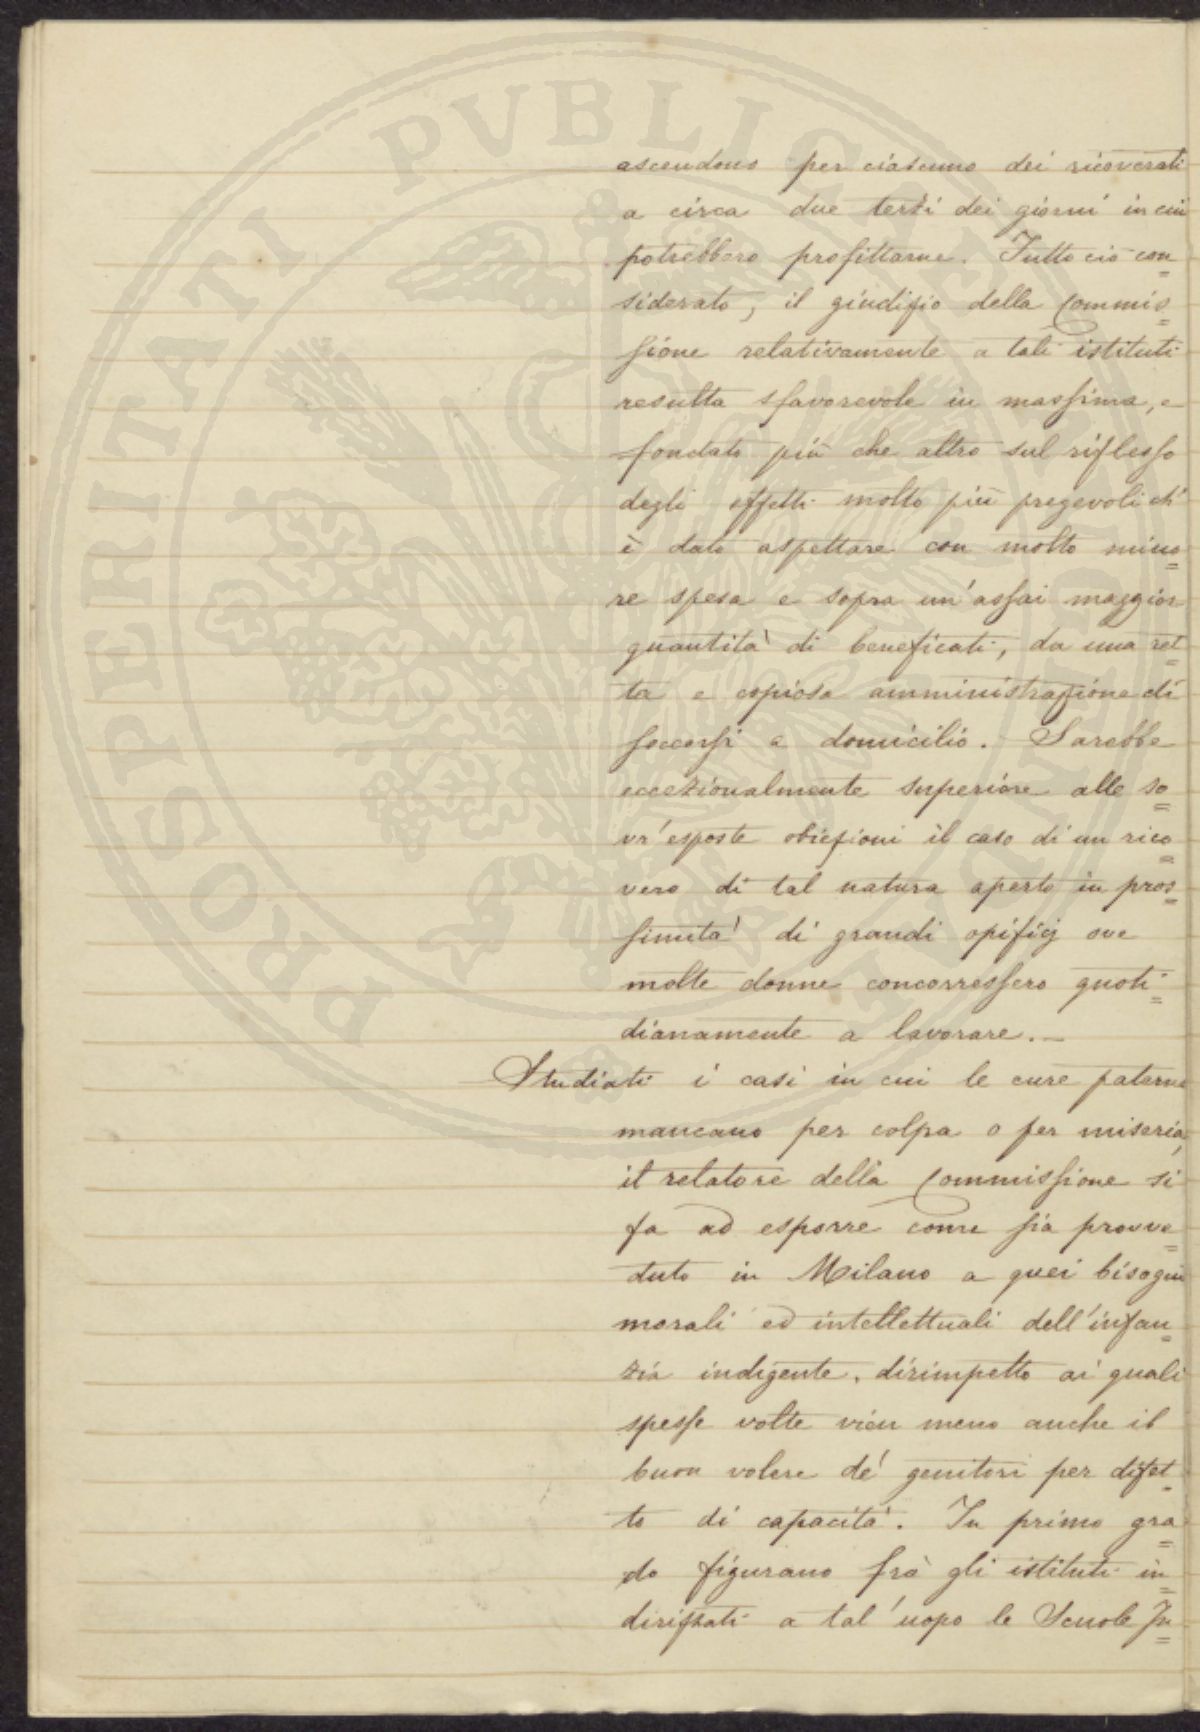 ascendono per ciascuno dei ricoverati
a circa due terzi dei giorni in cui
potrebbero profittarne. Tutto ciò con=
siderato, il giudizio della Commis=
sione relativamente a tali istituti
resulta sfavorevole in massima, e
fondato più che altro sul riflesso
degli effetti molto più pregevoli ch'
è dato aspettare con molto mino=
re spesa e sopra un'assai maggior
quantità di beneficati, da una ret=
ta e copiosa amministrazione di
soccorsi a domicilio. Sarebbe
eccezionalmente superiore alle so=
vr'esposte obiezioni il caso di un rico=
vero di tal natura aperto in pros=
simità di grandi opifizj ove
molte donne concorressero quoti=
dianamente a lavorare.—
Studiati i casi in cui le cure paterne
mancano per colpa o per miseria,
il relatore della Commissione si
fa ad esporre come sia provve=
duto in Milano a quei bisogni
morali ed intellettuali dell'infan=
zia indigente, dirimpetto ai quali
spesse volte vien meno anche il
buon volere de' genitori per difet=
to di capacità. In primo gra=
do figurano frà gli istituti in=
dirizzati a tal'uopo le Scuole In=
PROSPERITATI PVBLICAE